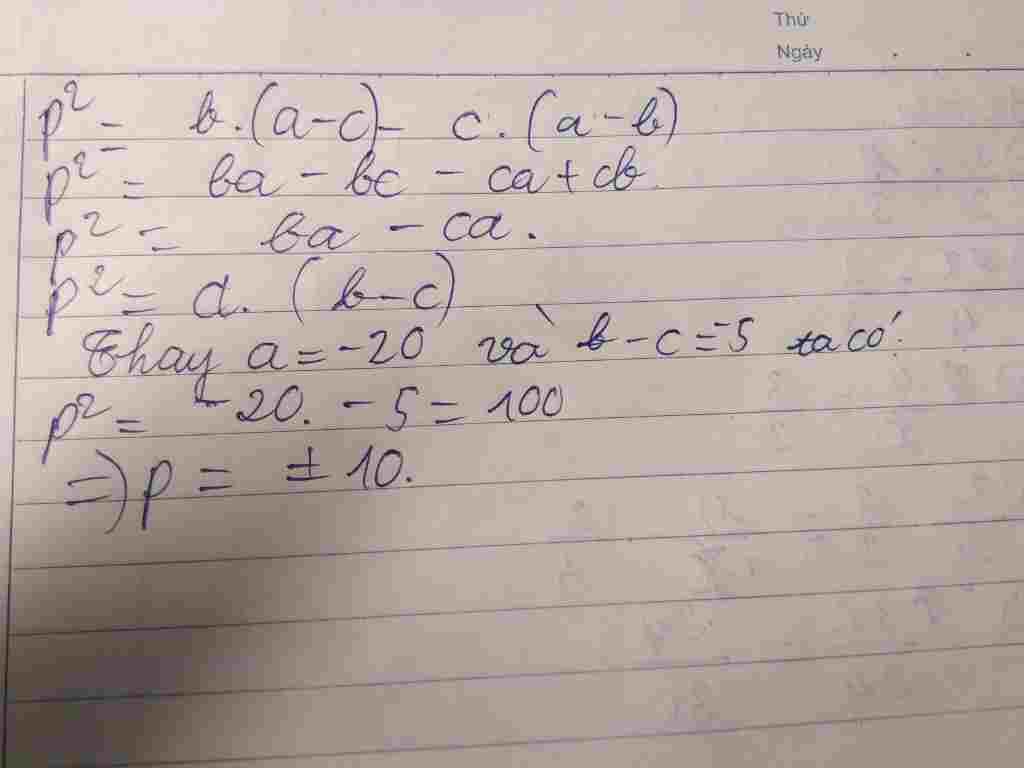 Thứ
Ngày . .
p² = b.(a-c)- c.(a-b)
p² = ba - bc - ca + cb
p² = ba - ca.
p² = a. (b-c)
Thay a = -20 và b-c = -5 ta có:
p² = -20. -5 = 100
=) p = ± 10.